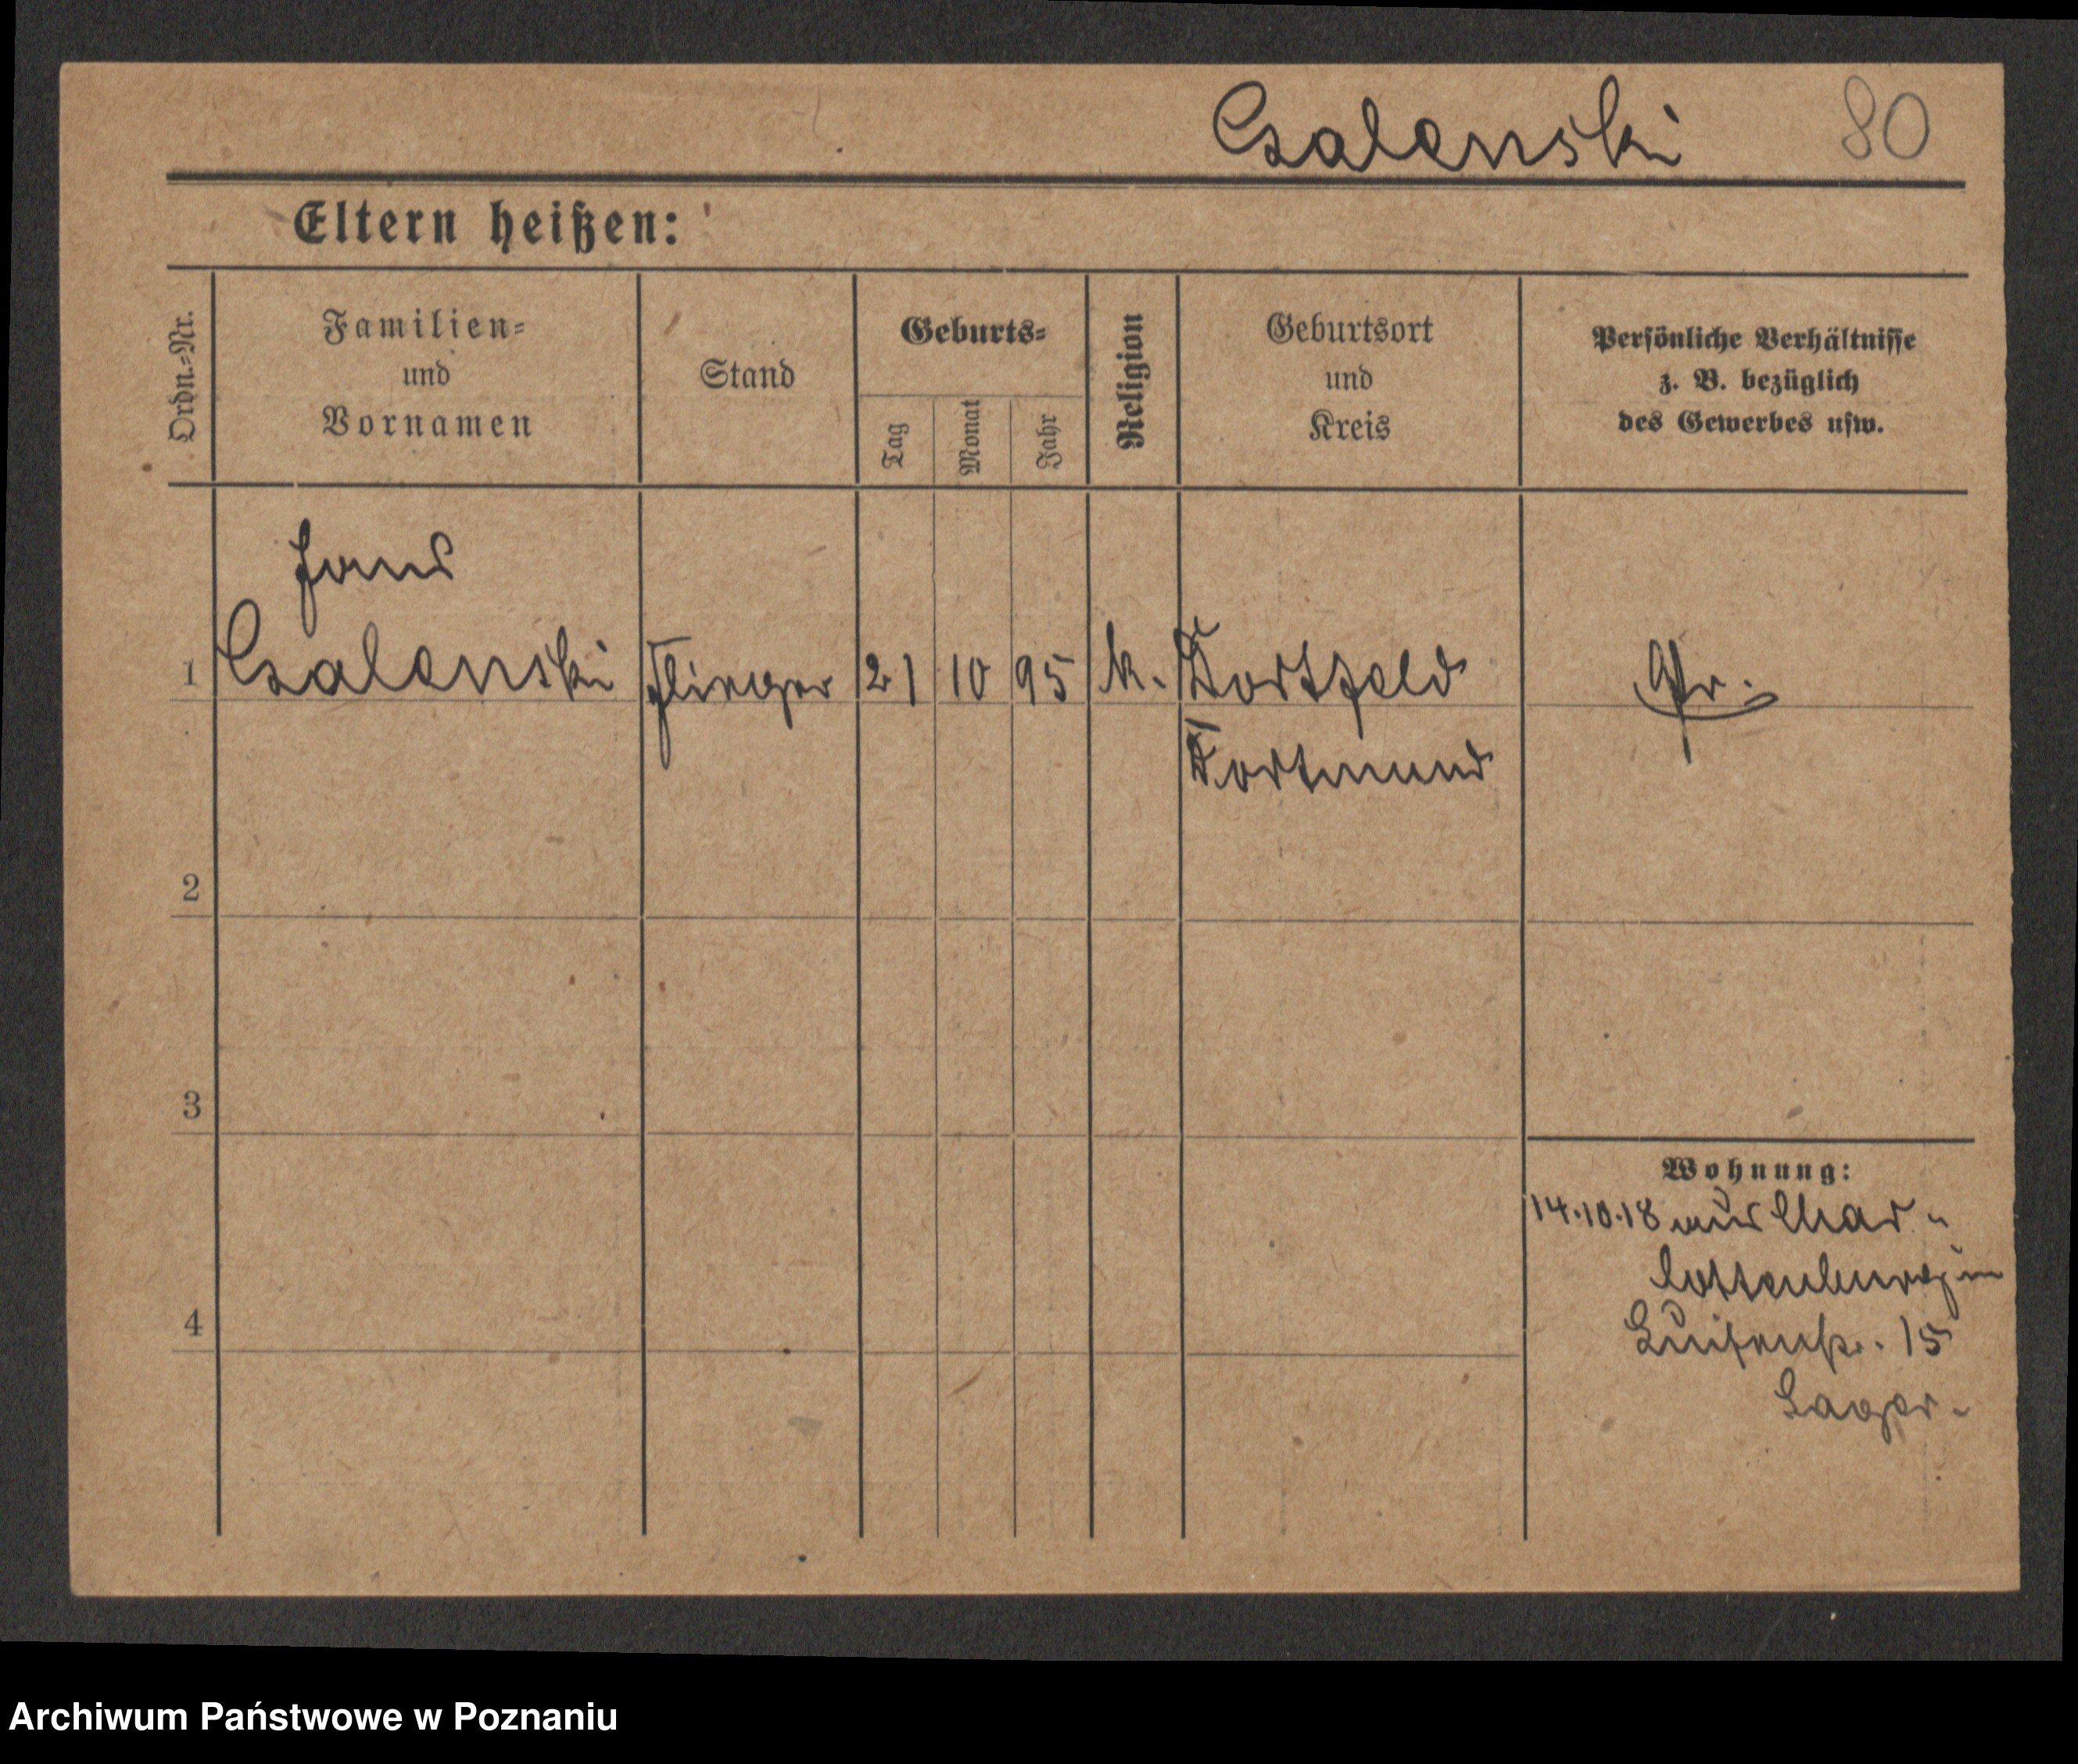 Csalenski 80
Eltern heißen:
Ordn.-Nr.
Familien-
und
Vornamen
Stand
Geburts-
Tag
Monat
Jahr
Religion
Geburtsort
und
Kreis
Persönliche Verhältnisse
z. B. bezüglich
des Gewerbes usw.
Hans
1 Csalenski Flieger 21 10 95 k. Dortfeld
Dortmund
2
3
4
Wohnung:
14.10.18 aus Char-
lottenburg in
Luisenstr. 15
Lager.
Archiwum Państwowe w Poznaniu